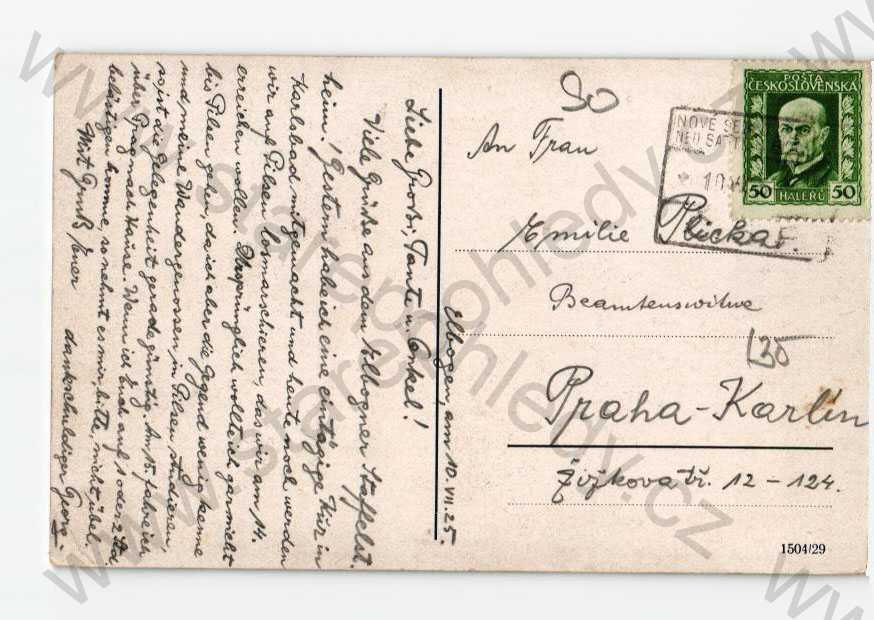 Elbogen, am 10.VII.25.
Liebe Groß, Tante u. Onkel!
Viele Grüße aus dem Elbogner Staffelst.
heim! Gestern habe ich eine eintägige Kur in
Karlsbad mitgemacht und heute noch werden
wir auf Pilsen losmarschieren, das wir am 14.
erreichen wollen. Ursprünglich wollte ich gar nicht
bis Pilsen gehn, da ich aber die Gegend wenig kenne
und meine Wandergenossen in Pilsen studieren,
so ist die Gelegenheit gerade günstig. Am 15. fahre ich
über Prag nach Hause. Wenn ich Euch auf 1 oder 2 Std.
belästigen komme, so nehmt es mir, bitte, nicht übel.
Mit Gruß Euer dankschuldiger Georg
An Frau
Emilie Plicka
Beamtenswitwe
Praha-Karlín
Žižkova tř. 12 - 124.
POŠTA
ČESKOSLOVENSKA
50 HALERŮ 50
NOVÉ SE
NEU SATT
1504/29
www.starepohledy.cz
www.starepohledy.cz